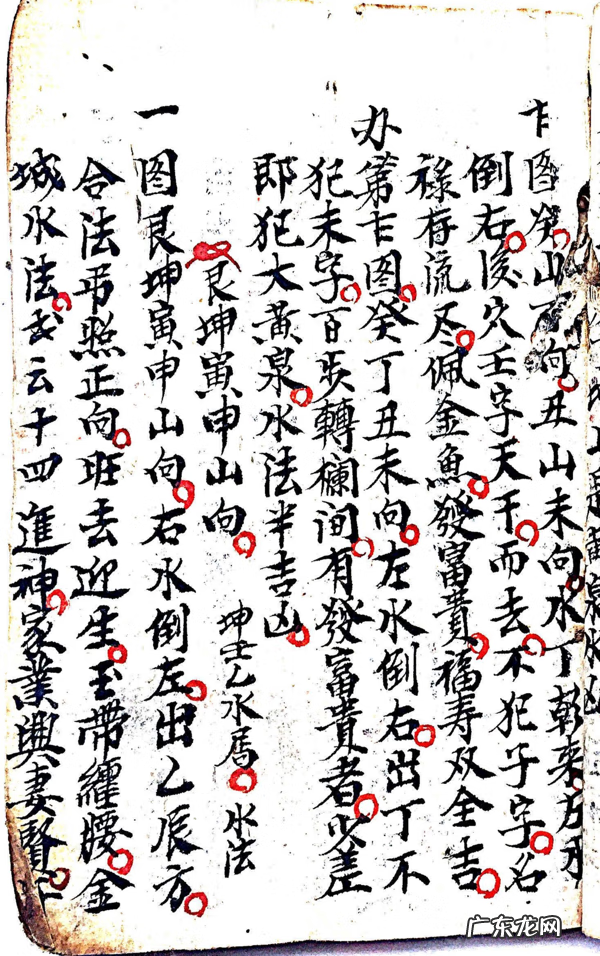 图癸山丁向丑山未向水丁
倒右後穴壬字天干而去不犯子字名
禄存流尽佩金魚發富貴福寿双全吉
办第七图癸丁丑未向左水倒右出丁不
犯未字百步轉欄间有發富貴者少差
即犯大黄泉水法半吉凶
艮坤寅申山向 坤壬乙水局水法
一图艮坤寅申山向右水倒左出乙辰方
合法吊照正向班去迎生玉帶纏腰金
城水法云十四進神家業興妻賢
广东龙网